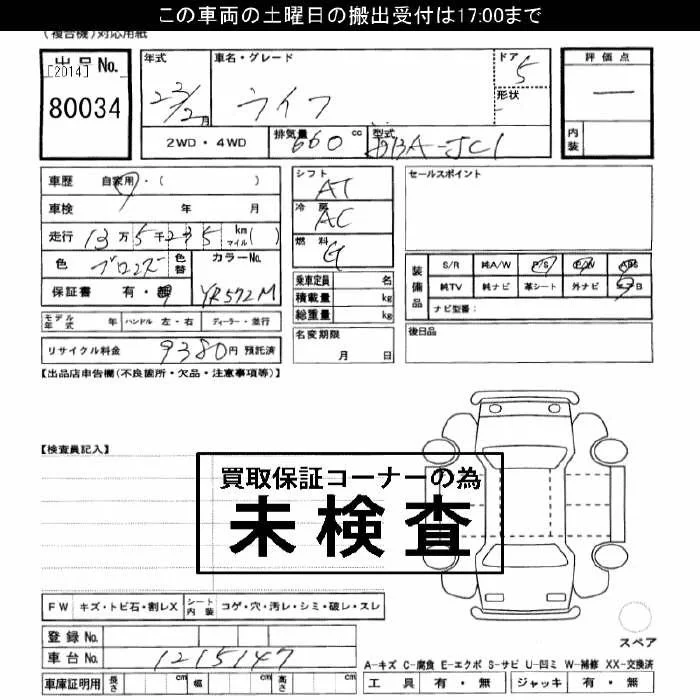 この車両の土曜日の搬出受付は17:00まで
(複合機)対応用紙
出品No.
[2014]
80034
年式
22/2月
車名・グレード
ライフ
ドア
5
形状
評価点
一
内装
2WD・4WD
排気量 660 cc
型式 DBA-JC1
車歴 自家用・( )
車検 年 月
走行 13万5千235 km マイル( )
色 ブロンズ 色替
カラーNo.
YR572M
保証書 有・無
モデル年式 年 ハンドル 左・右 ディーラー・並行
リサイクル料金 9380円 預託済
シフト
AT
冷房
AC
燃料
G
乗車定員 名
積載量 kg
総重量 kg
名変期限
月 日
セールスポイント
装備品
S/R 純A/W P/S P/W ABS
純TV 純ナビ 革シート 外ナビ
ナビ型番:
後日品
【出品店申告欄(不良箇所・欠品・注意事項等)】
【検査員記入】
買取保証コーナーの為
未検査
FW キズ・トビ石・割レX シート内装 コゲ・穴・汚レ・シミ・破レ・スレ
登録No.
車台No. 1215147
車庫証明用 長さ cm 幅 cm 高さ cm
スペア
A-キズ C-腐食 E-エクボ S-サビ U-凹ミ W-補修 XX-交換済
工具 有・無 ジャッキ 有・無